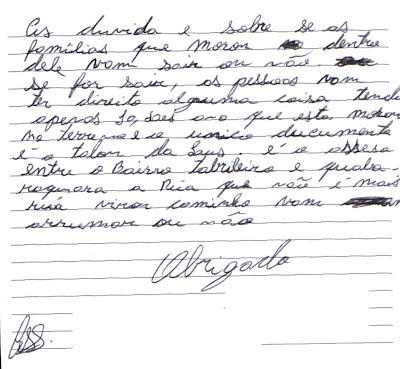 As duvida e sobre se as
familias que moron dentro
dele vam sair ou não
se for sair, as pessoas vam
ter direito alguma coisa tendo
apenas so, ano que esta moron
no terreno e o unico ducumento
é o talon da Luz é o
entre o Bairro e
a Rua que não é mais
ruá viron caminho vam
arrumar ou não
Obrigado